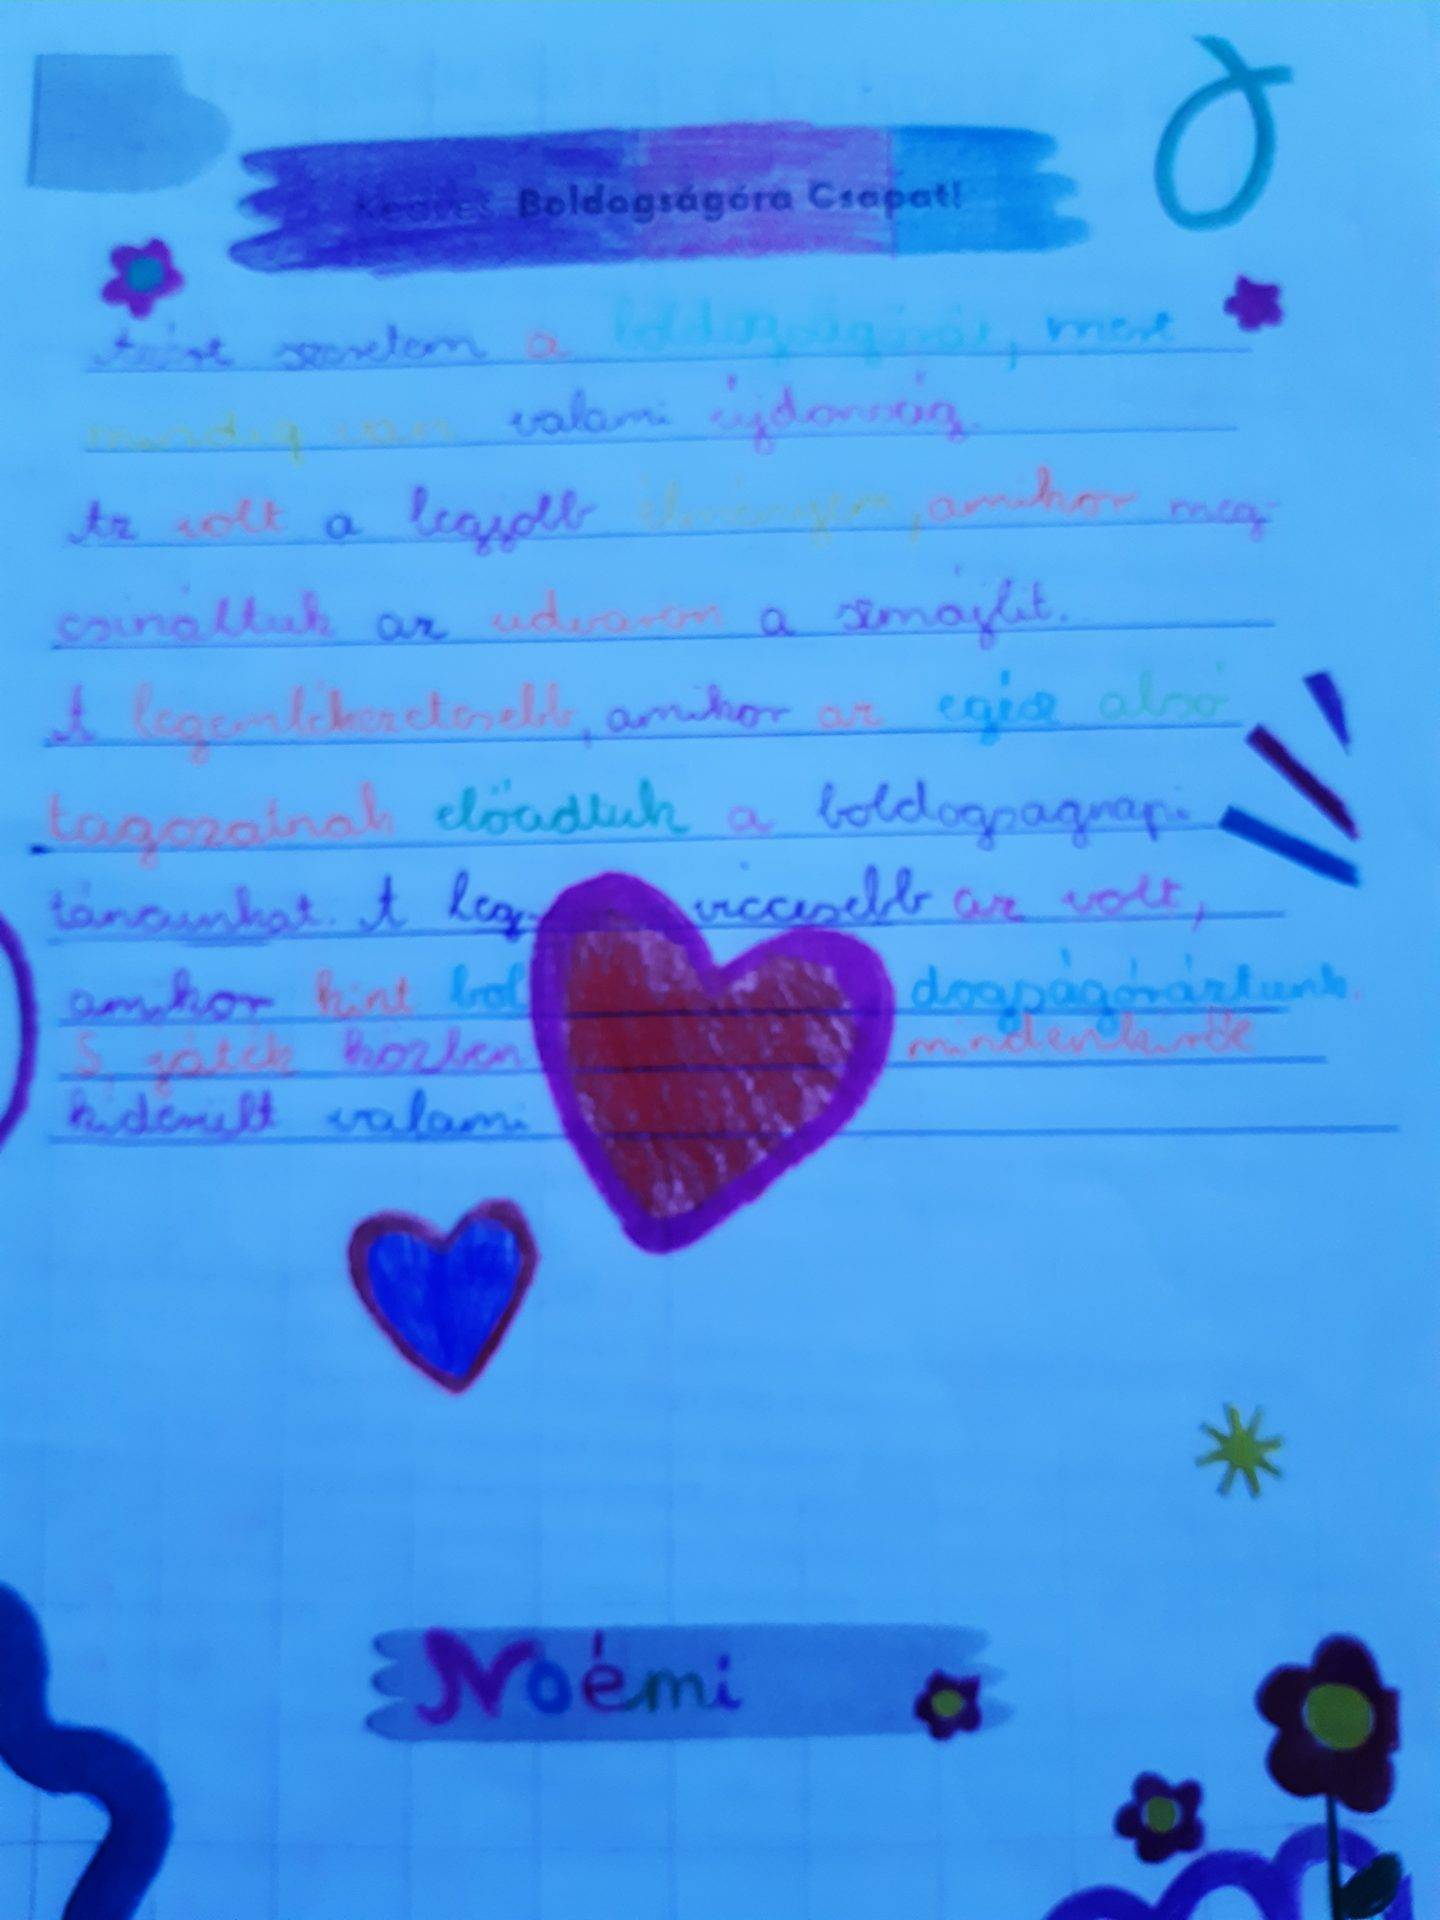 Kedves Boldogságóra Csapat!
Azért szeretem a boldogságórát, mert
mindig van valami újdonság.
Az volt a legjobb élményem, amikor meg-
csináltuk az udvaron a szmájlit.
A legemlékezetesebb, amikor az egész alsó
tagozatnak előadtuk a boldogságnapi
táncunkat. A leg- viccesebb az volt,
amikor kint bol dogságóráztunk.
S játék közben mindenkiről
kiderült valami
Noémi